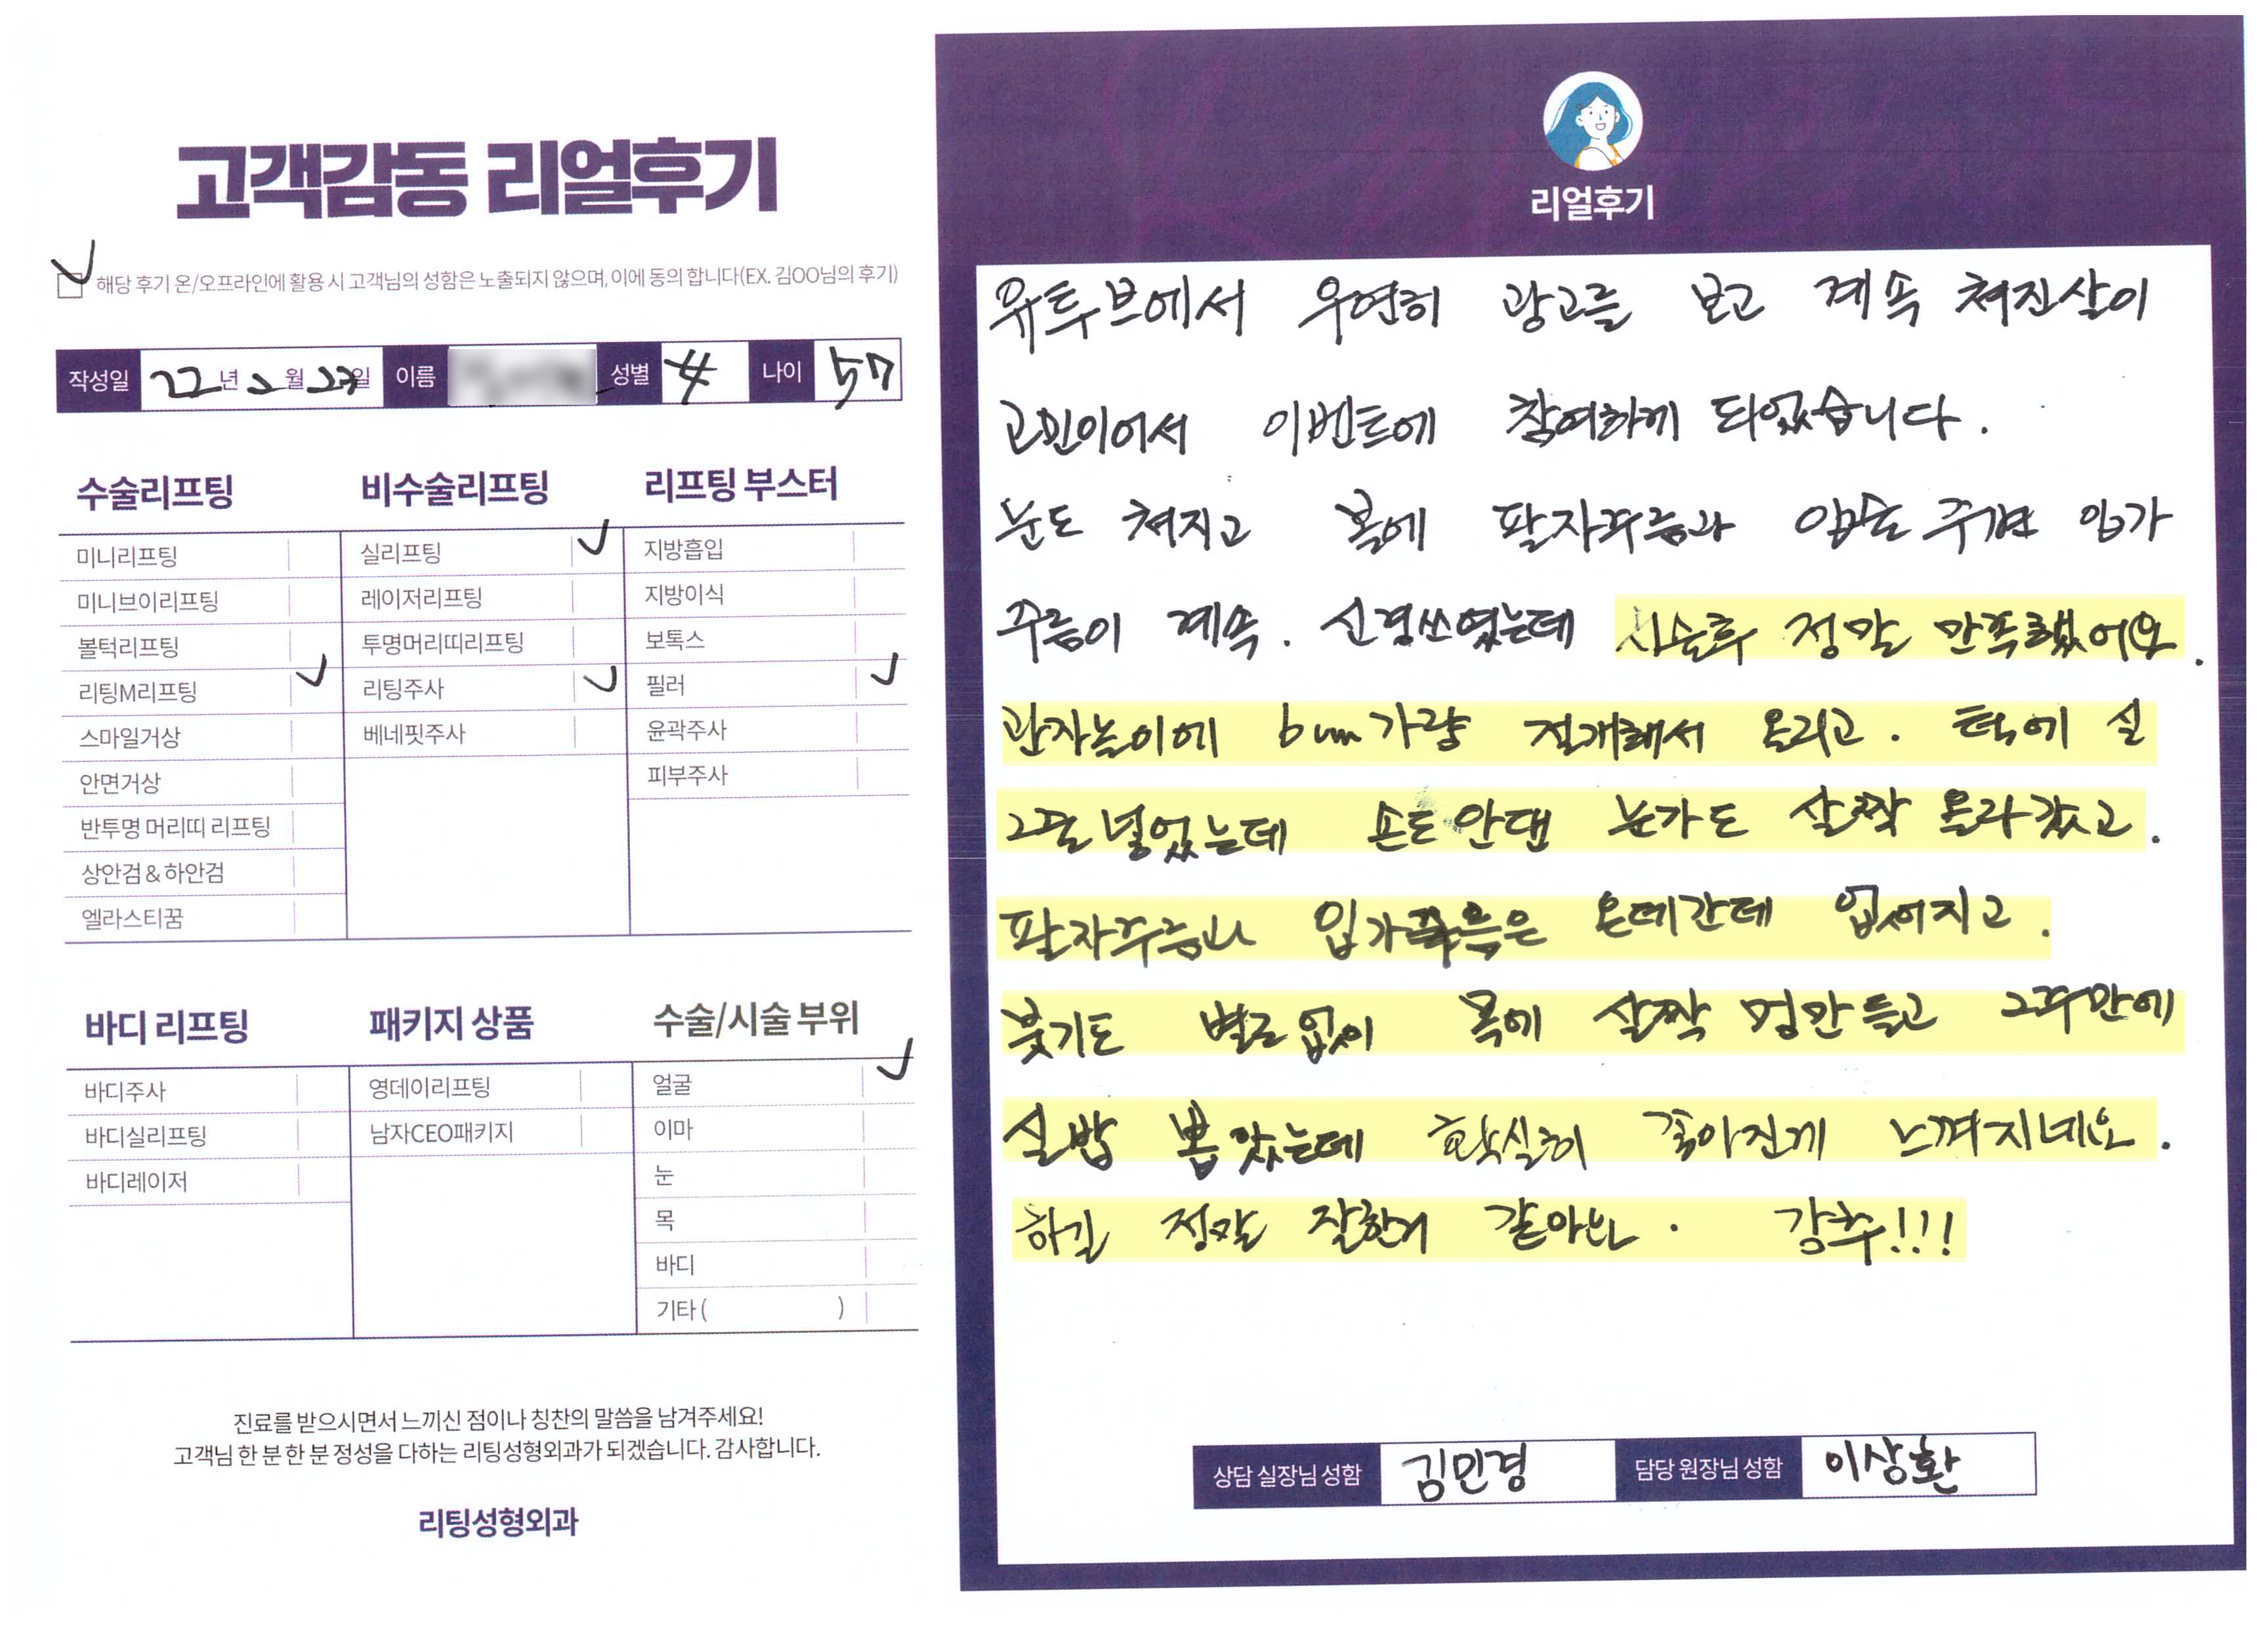 고객감동 리얼후기
해당 후기 온/오프라인에 활용 시 고객님의 성함은 노출되지 않으며, 이에 동의 합니다(EX. 김OO님의 후기)
작성일 22년 2월 23일 이름 성별 女 나이 57
수술리프팅
미니리프팅
미니브이리프팅
볼턱리프팅
리팅M리프팅
스마일거상
안면거상
반투명 머리띠 리프팅
상안검 & 하안검
엘라스티꿈
비수술리프팅
실리프팅
레이저리프팅
투명머리띠리프팅
리팅주사
베네핏주사
리프팅 부스터
지방흡입
지방이식
보톡스
필러
윤곽주사
피부주사
바디 리프팅
바디주사
바디실리프팅
바디레이저
패키지 상품
영데이리프팅
남자CEO패키지
수술/시술 부위
얼굴
이마
눈
목
바디
기타 ( )
진료를 받으시면서 느끼신 점이나 칭찬의 말씀을 남겨주세요!
고객님 한 분 한 분 정성을 다하는 리팅성형외과가 되겠습니다. 감사합니다.
리팅성형외과
리얼후기
유투브에서 우연히 광고를 보고 계속 쳐진살이
고민이어서 이벤트에 참여하게 되었습니다.
눈도 쳐지고 볼에 팔자주름과 입술 주변 입가
주름이 계속. 신경쓰였는데 시술후 정말 만족했어요.
관자놀이에 6cm가량 절개해서 올리고. 턱에 실
2줄 넣었는데 손도 안댄 눈가도 살짝 올라갔고.
팔자주름나 입가쪽은 온데간데 없어지고.
붓기도 별로없이 목에 살짝 멍만 들고 2주만에
실밥 뽑았는데 확실히 좋아진게 느껴지네요.
하길 정말 잘한거 같아요. 강추!!!
상담 실장님 성함 김민경 담당 원장님 성함 이상환